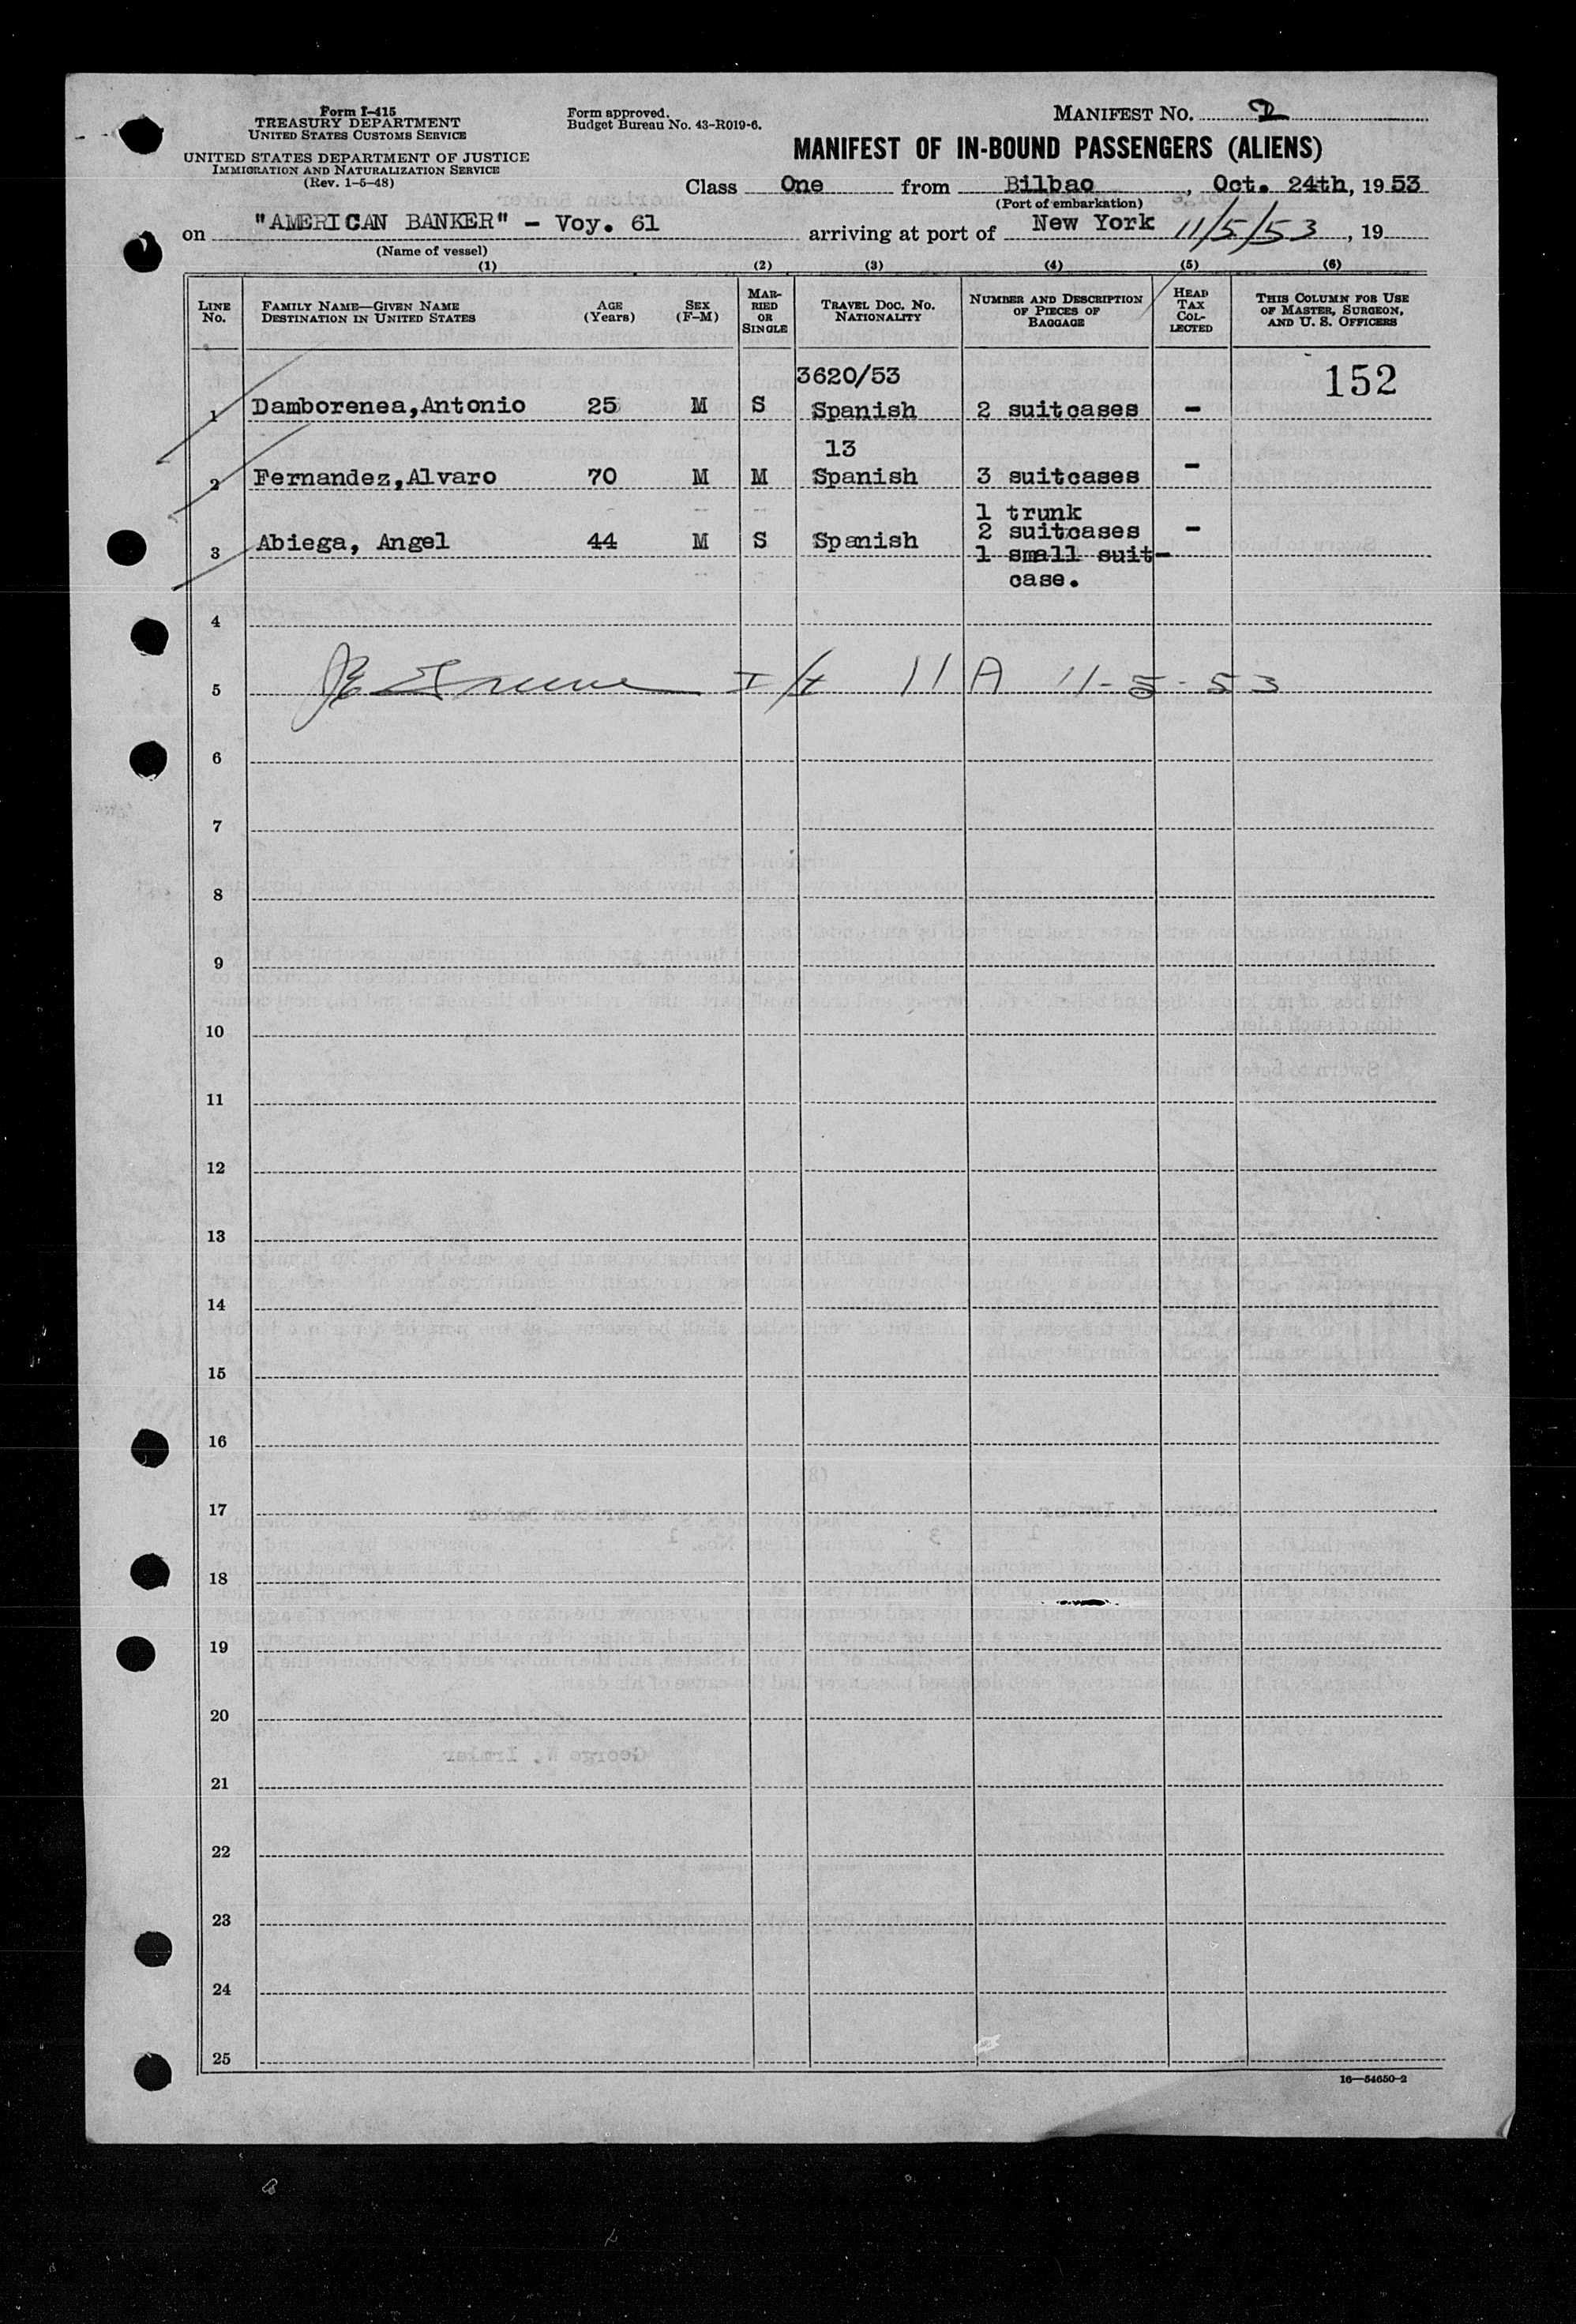 Form I-415
TREASURY DEPARTMENT
UNITED STATES CUSTOMS SERVICE
UNITED STATES DEPARTMENT OF JUSTICE
IMMIGRATION AND NATURALIZATION SERVICE
(Rev. 1-5-48)
Form approved.
Budget Bureau No. 43-R019-6.
MANIFEST NO. D
MANIFEST OF IN-BOUND PASSENGERS (ALIENS)
Class One from Bilbao, Oct. 24th, 1953
(Port of embarkation)
on "AMERICAN BANKER" - Voy. 61 arriving at port of New York 11/5/53, 19
(Name of vessel)
(1) (2) (3) (4) (5) (6)
LINE NO. FAMILY NAME—GIVEN NAME DESTINATION IN UNITED STATES AGE (Years) SEX (F-M) MARRIED OR SINGLE TRAVEL DOC. NO. NATIONALITY NUMBER AND DESCRIPTION OF PIECES OF BAGGAGE HEAD TAX COLLECTED THIS COLUMN FOR USE OF MASTER, SURGEON, AND U. S. OFFICERS
3620/53 152
1 Damborenea,Antonio 25 M S Spanish 2 suitcases -
13
2 Fernandez,Alvaro 70 M M Spanish 3 suitcases -
1 trunk
2 suitcases -
3 Abiega, Angel 44 M S Spanish 1 small suit-
case.
4
5 11A 11-5-53
6
7
8
9
10
11
12
13
14
15
16
17
18
19
20
21
22
23
24
25
16—54650-2